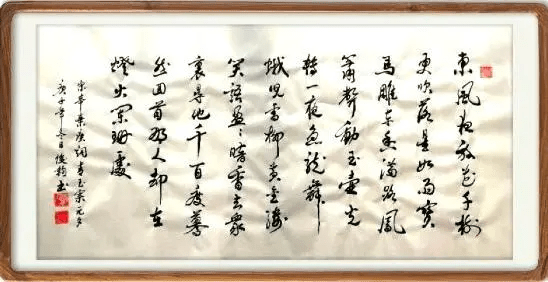 東風夜放花千樹
更吹落星如雨寶
馬雕車香滿路鳳
簫聲動玉壺光
轉一夜魚龍舞
蛾兒雪柳黃金縷
笑語盈〻暗香去衆
裏尋他千百度驀
然回首那人却在
燈火闌珊處
宋辛棄疾詞青玉案元夕
庚子年冬月